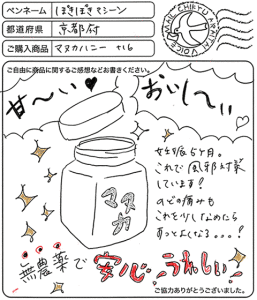 ペンネーム ぽきぽきマシーン
都道府県 京都府
ご購入商品 マヌカハニー
ご自由に商品に関するご感想などお書きください。
甘〜い♥
おいし〜い
妊娠5ヶ月。
これで風邪対策
しています!
のどの痛みも
これを少しなめたら
すっとよくなる...!
マヌカ
無農薬で安心、うれしい!
ご協力ありがとうございました。